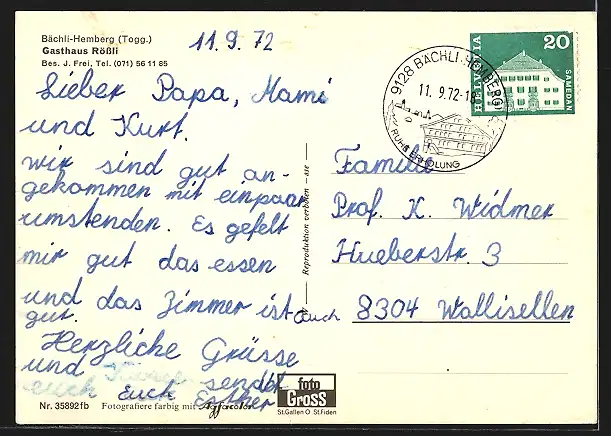 Bächli-Hemberg (Togg.)
Gasthaus Rößli
Bes. J. Frei, Tel. (071) 56 11 85
11.9.72
Lieber Papa, Mami
und Kurt.
Wir sind gut an-
gekommen mit einpaar
umstenden. Es gefelt
mir gut das essen
und das Zimmer ist auch
gut.
Herzliche Grüsse
und sendet
euch Euch Esther
Nr. 35892fb Fotografiere farbig mit
Reproduktion verboten
foto
Gross
St.Gallen O St.Fiden
9128 BÄCHLI-HEMBERG
11. 9.72-18
RUHE ERHOLUNG
HELVETIA
20
SAMEDAN
Familie
Prof. K. Widmer
Hueberstr. 3
8304 Wallisellen